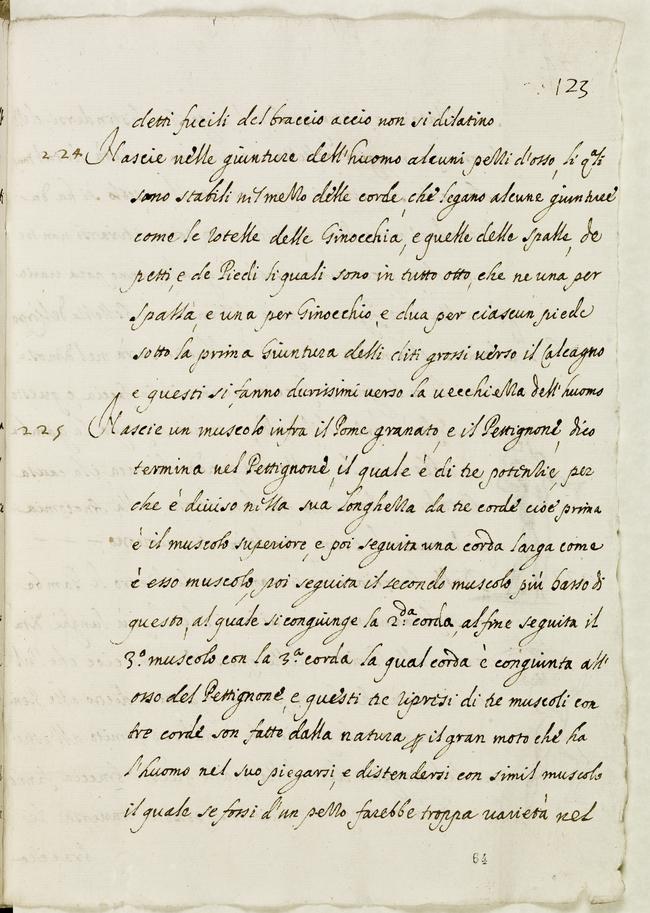 123
detti fucili del braccio accio non si dilatino
224 Nascie nelle giunture dell'huomo alcuni pezzi d'osso, li q.li
sono stabili nel mezzo delle corde, che legano alcune giunture
come le rotelle delle Ginocchia, e quelle delle spalle, de
petti, e de Piedi li quali sono in tutto otto, che ne una per
spalla, e una per Ginocchio, e dua per ciascun piede
sotto la prima Giuntura delli diti grossi verso il Calcagno
e questi si fanno durissimi verso la uecchiezza dell'huomo
225 Nascie un muscolo infra il Pome granato, e il Pettignone, dico
termina nel Pettignone, il quale è di tre potentie, per
che è diuiso nella sua longhezza da tre corde cioè prima
è il muscolo superiore, e poi seguita una corda larga come
è esso muscolo, poi seguita il secondo muscolo più basso di
questo, al quale si congiunge la 2.da corda, al fine seguita il
3.o muscolo con la 3.a corda la qual corda è congiunta all'
osso del Pettignone, e questi tre ripresi di tre muscoli con
tre corde son fatte dalla natura p il gran moto che ha
l'huomo nel suo piegarsi, e distendersi con simil muscolo
il quale se forsi d'un pezzo farebbe troppa uarietà nel
64